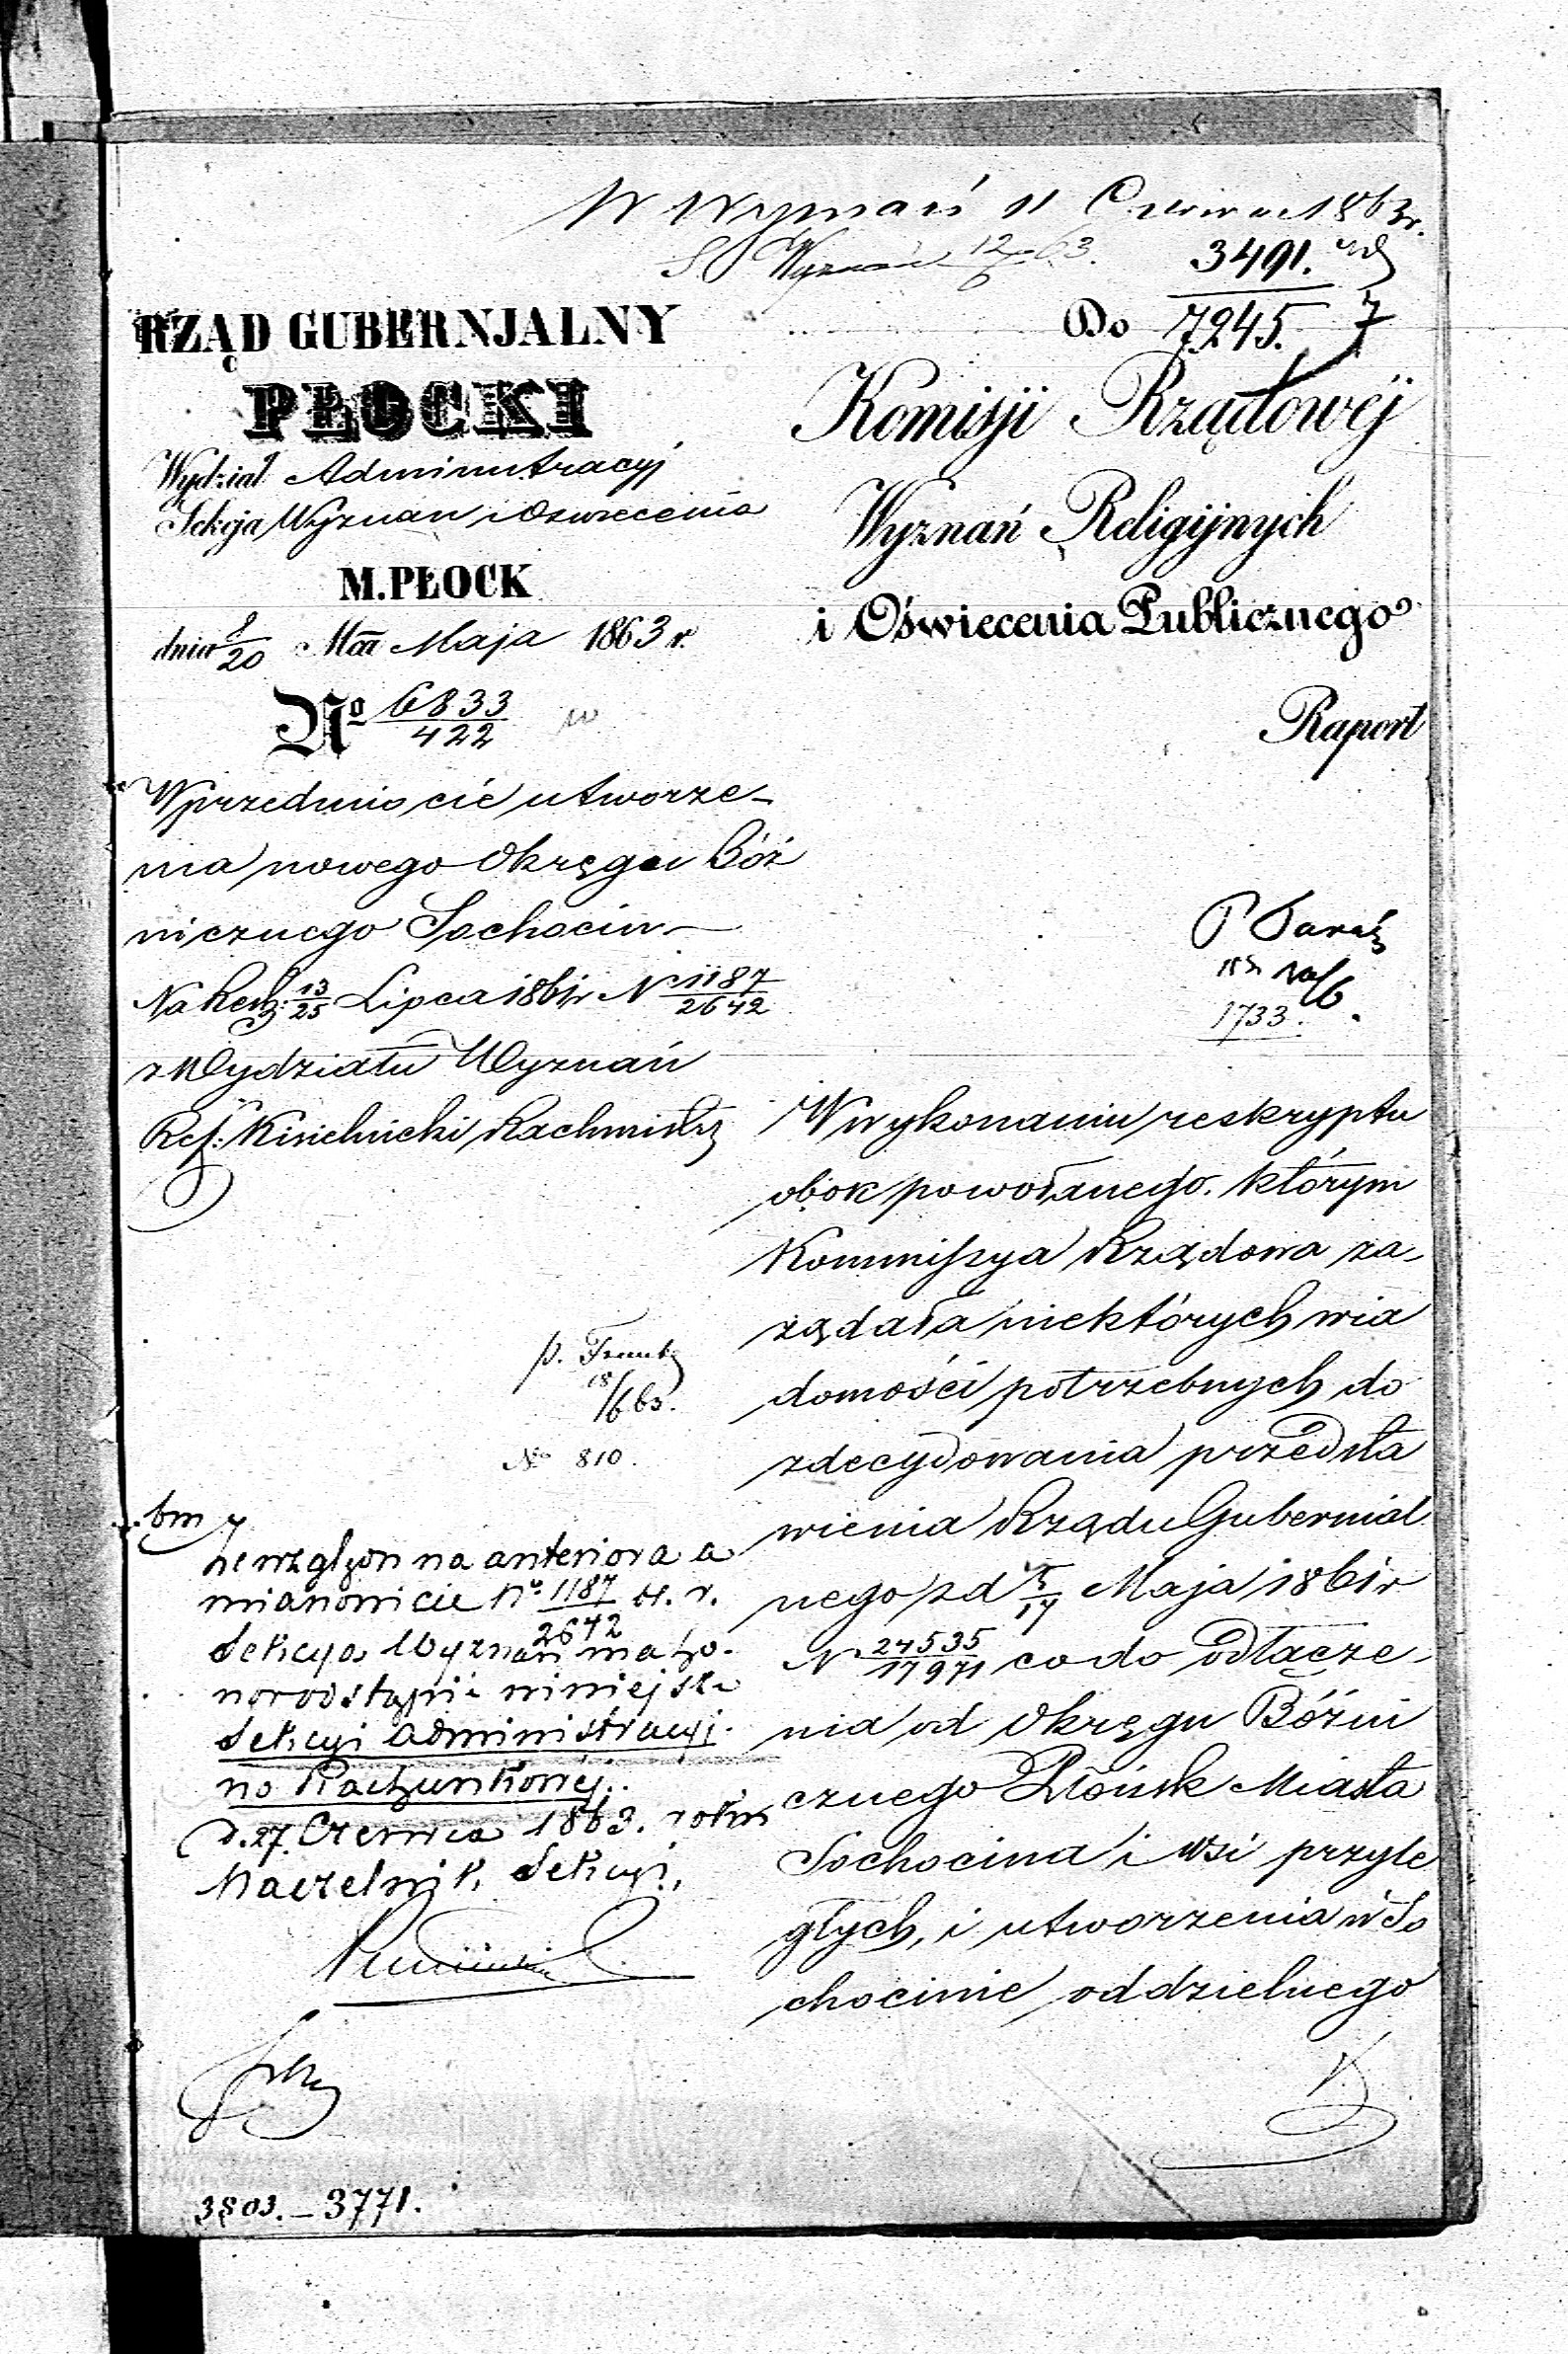 W Wyznań 11 Czerwca 1863 r.
S Wyznań 12/6 63.
3491.
7245. 7
RZĄD GUBERNJALNY
PŁOCKI
Wydział Administracyj
Sekcja Wyznan i Oswiecenia
M. PŁOCK
dnia 8/20 Maja 1863 r.
No 6833/422
Do
Komisji Rządowéj
Wyznań Religijnych
i Oświecenia Publicznego
Raport
W przedmiocie utworze-
nia nowego Okręgu Bóż
nicznego Sochocin
Na Resk: 13/25 Lipca 1861 r N 1187/2642
z Wydziału Wyznań
Ref: Kisielnicki Rachmistrz
1733.
W wykonaniu reskryptu
obok powołanego, którym
Kommissya Rządowa za-
żądała niektórych wia
domości potrzebnych do
zdecydowania przedsta
wienia Rządu Gubernial
nego z d 5/17 Maja 1861 r
N 24535/17971 co do odłącze-
nia od Okręgu Bóźni
cznego Płońsk Miasta
Sochocina i wsi przyle
głych, i utworzenia w So
chocinie oddzielnego
18/6 63.
No 810.
Ze względu na anteriora a
mianowicie No 1187/2642 r.
Sekcya Wyznań ma ho-
nor odstąpić niniejsze
Sekcyi Administracyj-
no Rachunkowéj.
d. 27 Czerwca 1863. roku
Naczelnik Sekcyi,
3803. – 3771.